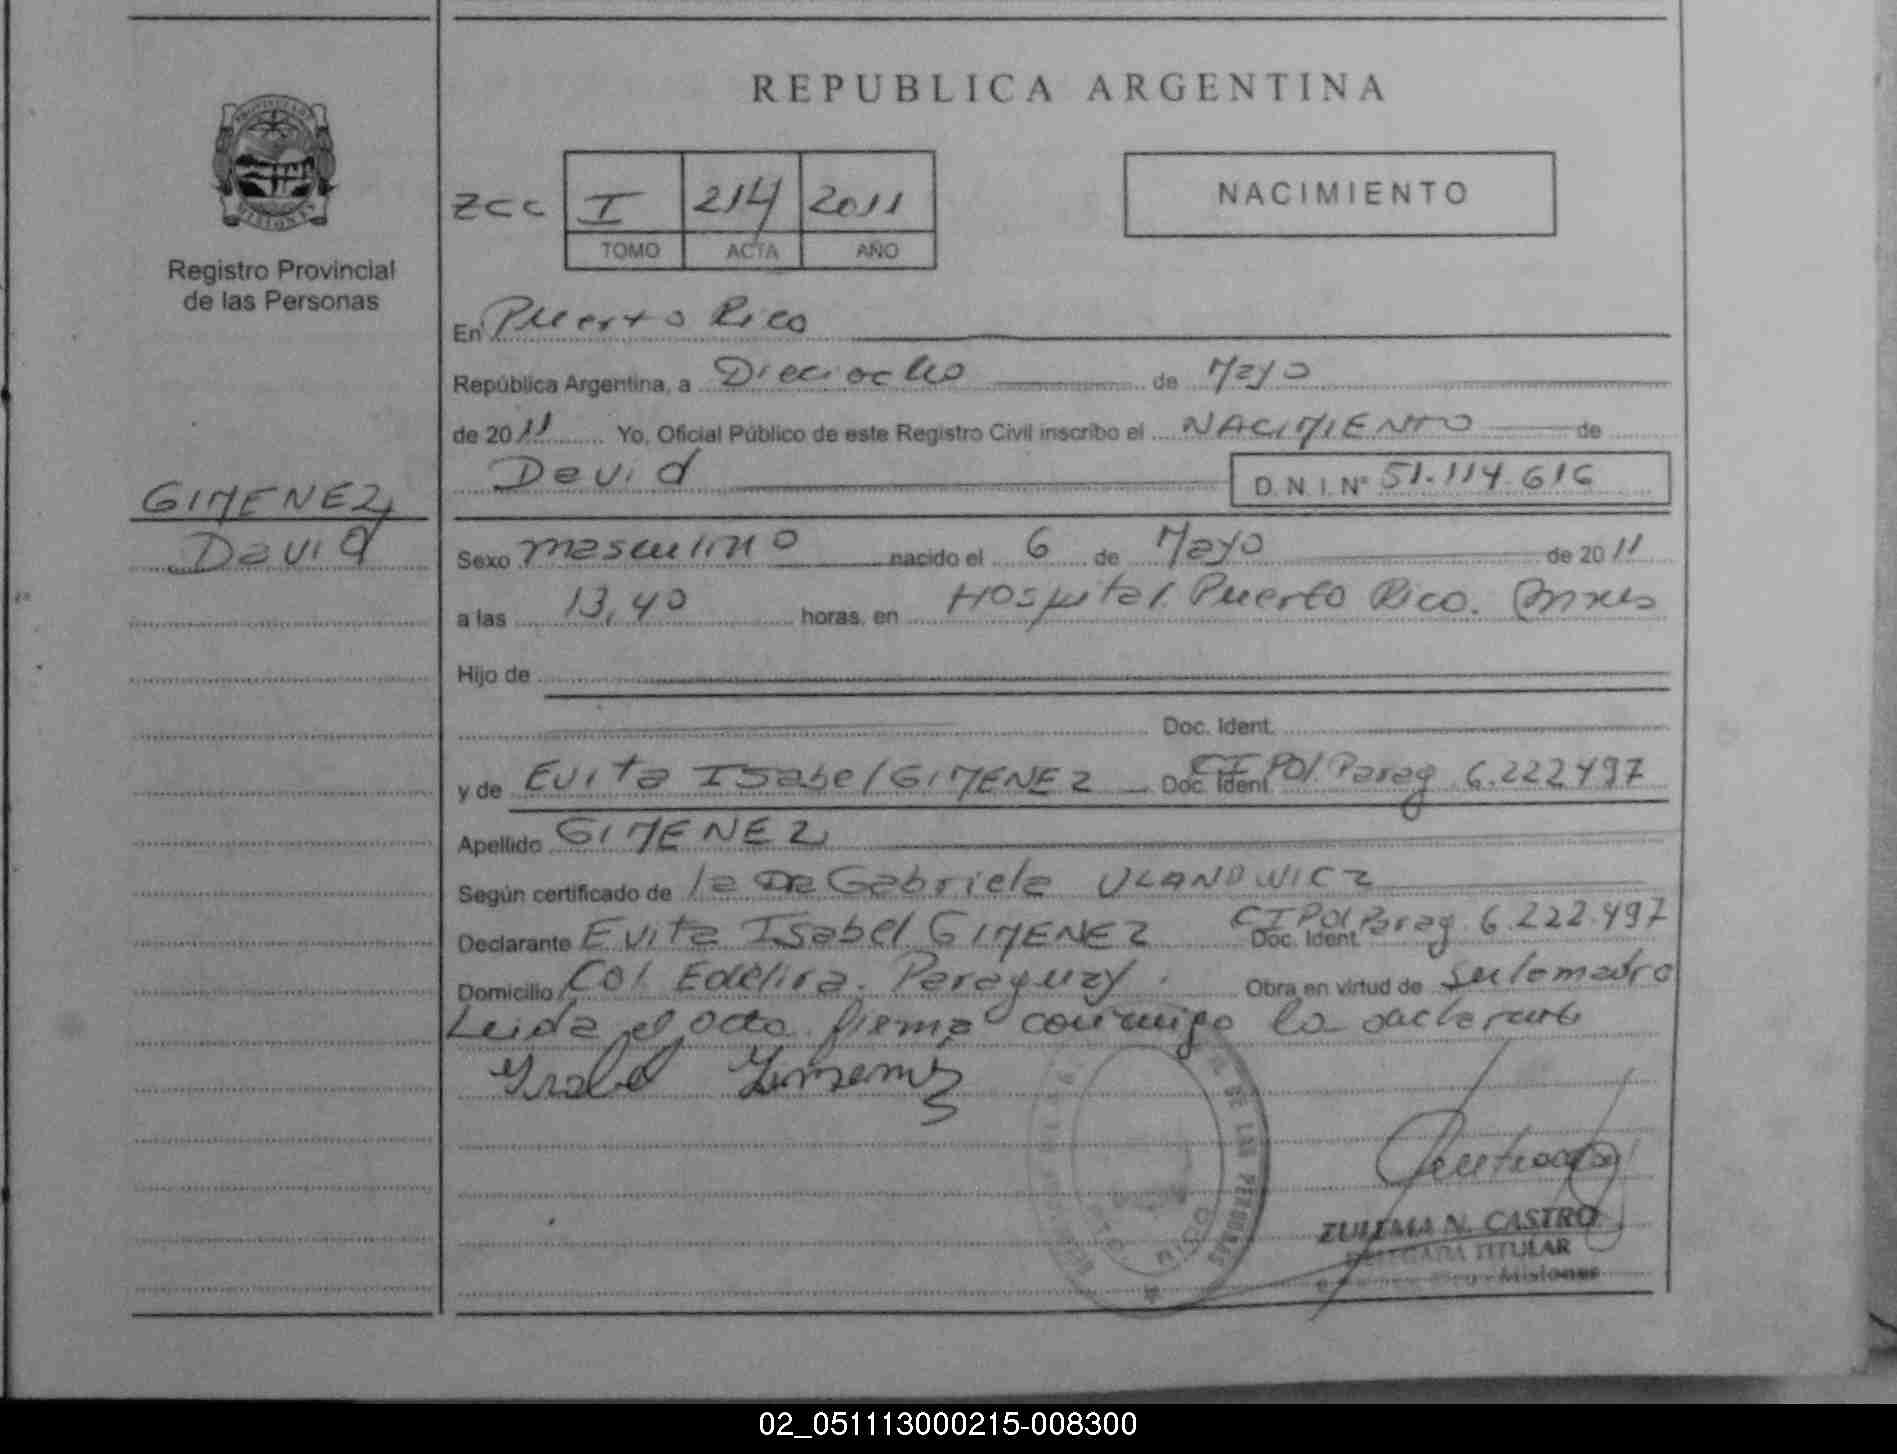 REPUBLICA ARGENTINA
PROVINCIA DE MISIONES
Registro Provincial
de las Personas
ZCC I 214 2011
TOMO ACTA AÑO
NACIMIENTO
En Puerto Rico
República Argentina, a Dieciocho de Mayo
de 2011 Yo, Oficial Público de este Registro Civil inscribo el NACIMIENTO de
David D. N. I. Nº 51.114.616
GIMENEZ
David
Sexo masculino nacido el 6 de Mayo de 2011
a las 13,40 horas, en Hospital Puerto Rico.
Hijo de
Doc. Ident.
y de Evita Isabel GIMENEZ Doc. Ident. CI Pol. Parag 6.222497
Apellido GIMENEZ
Según certificado de la Dra Gabriela ULANOWICZ
Declarante Evita Isabel GIMENEZ Doc. Ident. CI Pol Parag. 6.222.497
Domicilio Col. Edelira. Paraguay. Obra en virtud de
Leida el acta firma conmigo la declarante
DE LAS PERSONAS
ZULEMA N. CASTRO
DELEGADA TITULAR
Misiones
02_051113000215-008300